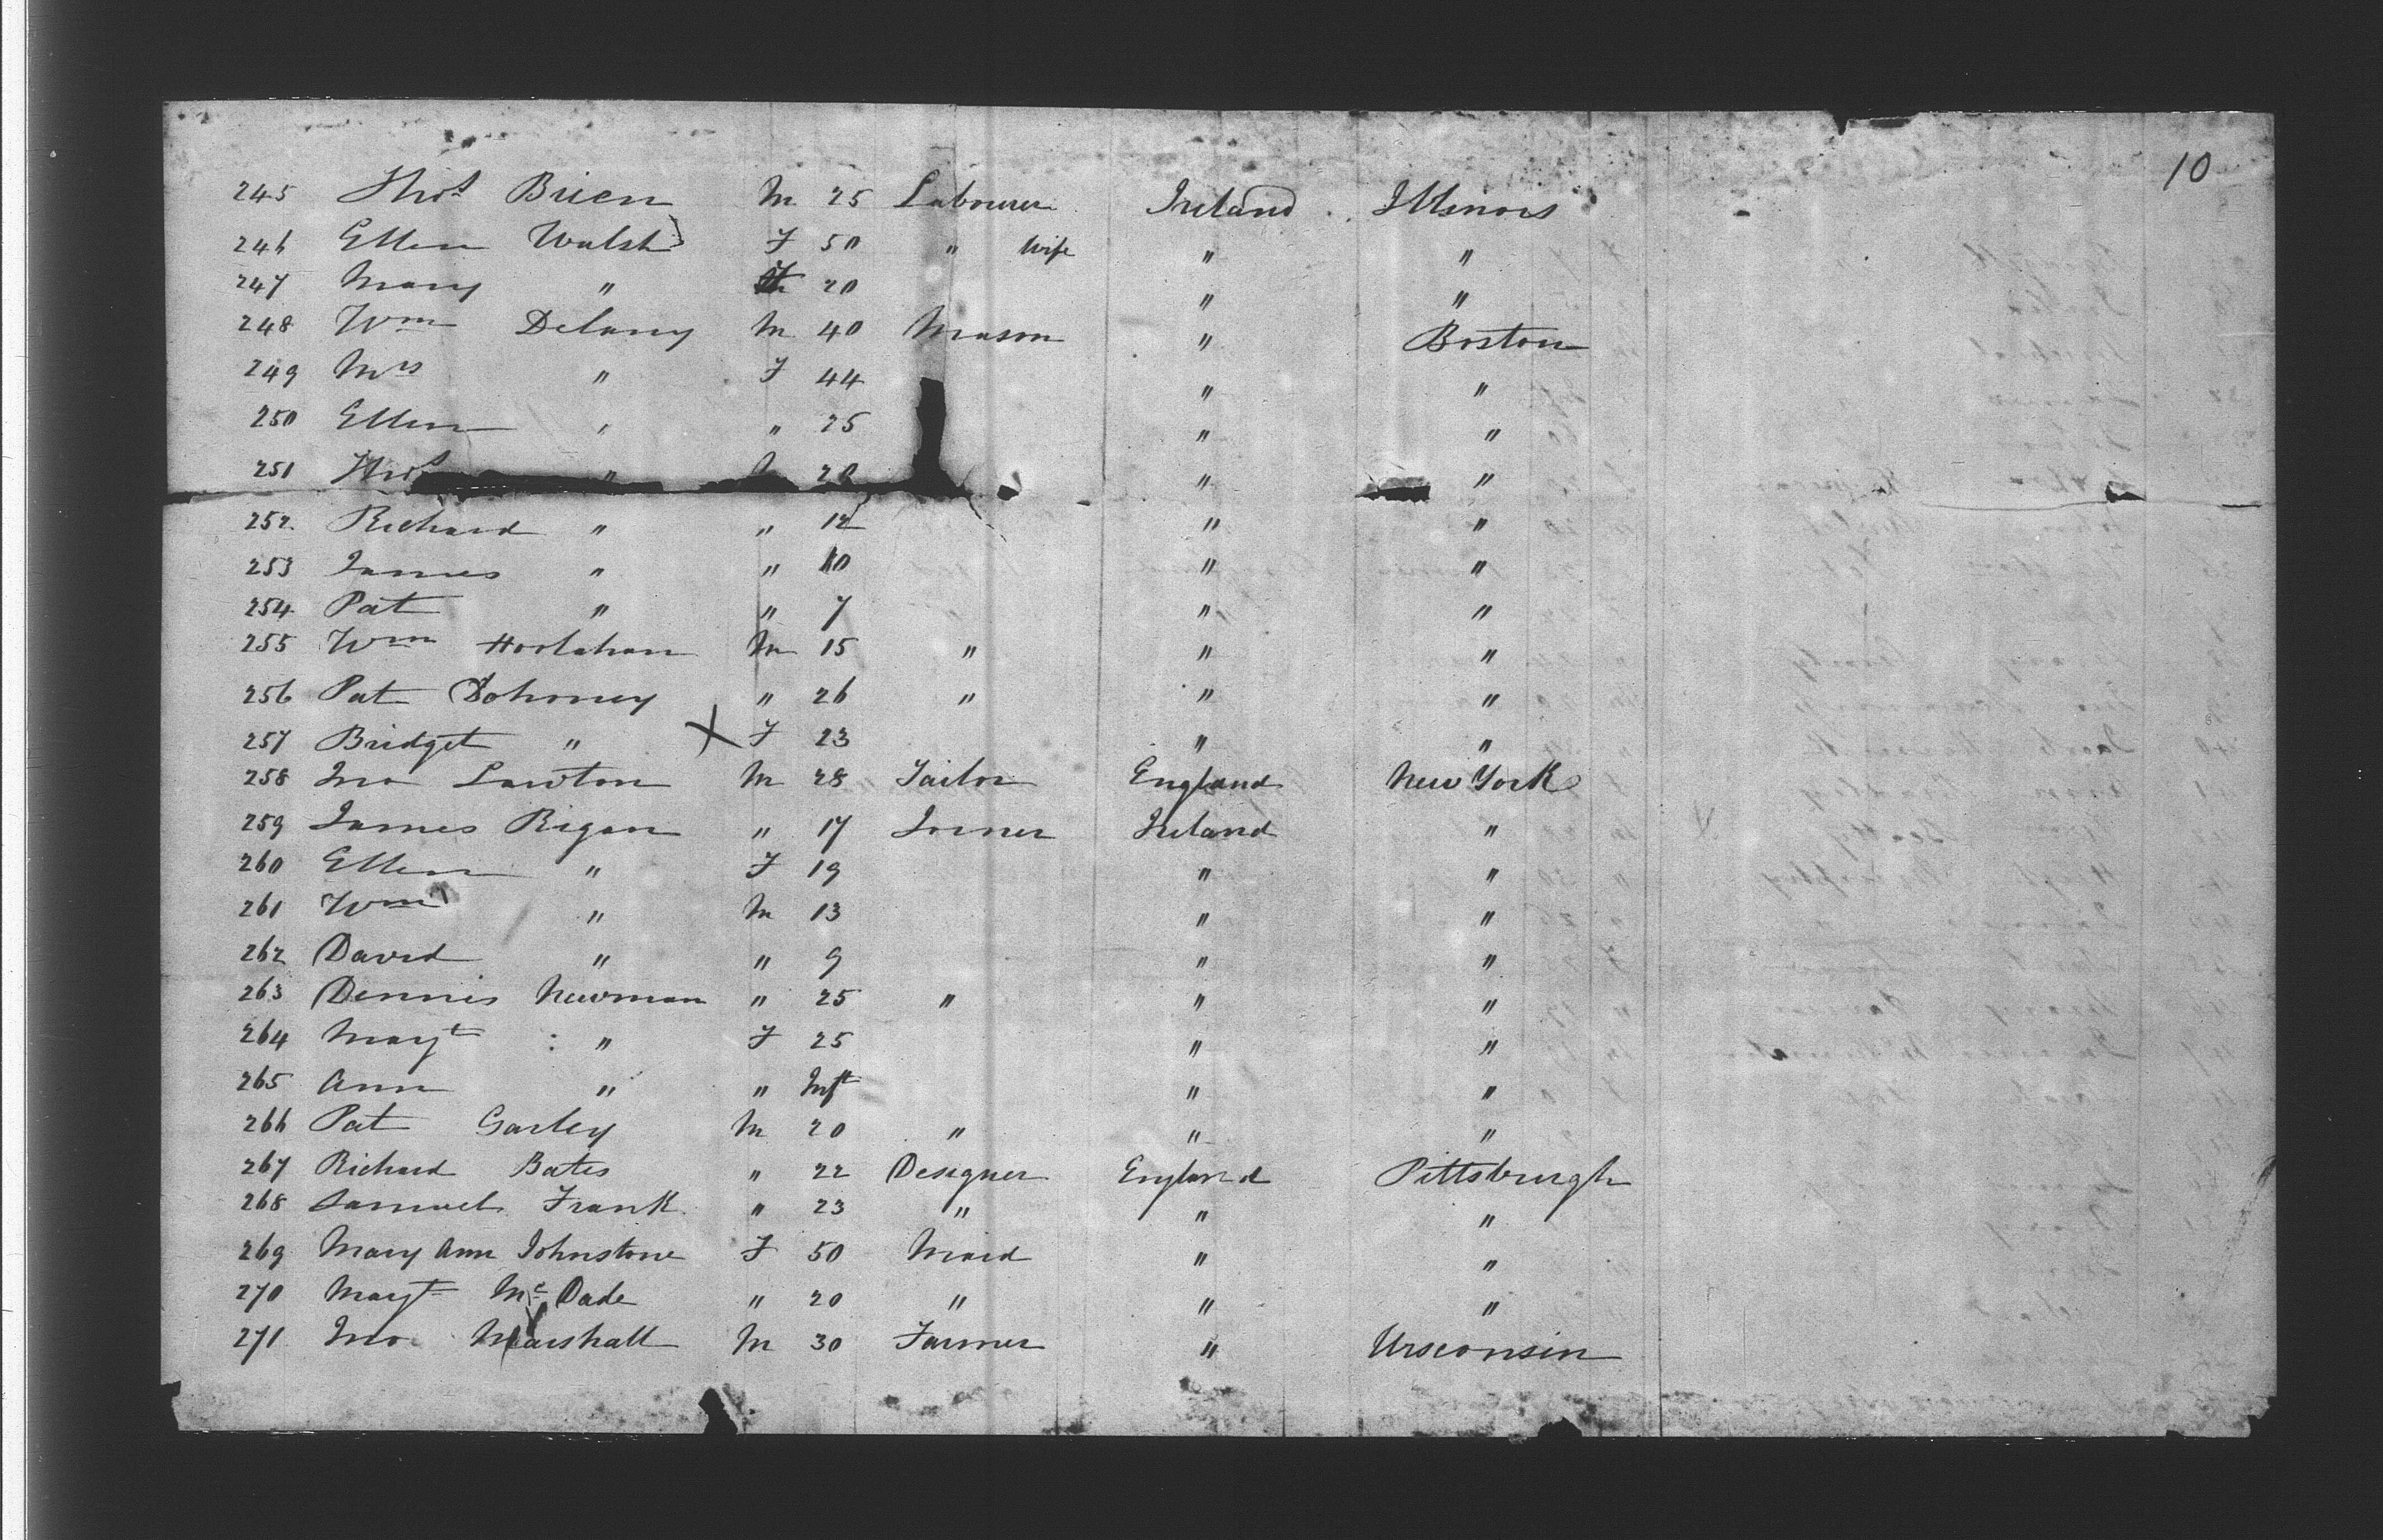 10
245 Thos Brien M 25 Labourer Ireland Illinois
246 Ellen Walsh F 50 " Wife " "
247 Mary " F 20 " "
248 Wm Delany M 40 Mason " Boston
249 Mrs " F 44 " "
250 Ellen " " 25 " "
251 Thos " 20 " "
252 Richard " " 12 " "
253 James " " 10 " "
254 Pat " " 7 " "
255 Wm Hoolahan M 15 " " "
256 Pat Dohoney " 26 " " "
257 Bridget " X F 23 " "
258 Jno Lawton M 28 Tailor England New York
259 James Rigan " 17 Joiner Ireland "
260 Ellen " F 19 " "
261 Wm " M 13 " "
262 David " " 9 " "
263 Dennis Newman " 25 " " "
264 Magt " F 25 " "
265 Ann " " Inft " "
266 Pat Garley M 20 " " "
267 Richard Bates " 22 Designer England Pittsburgh
268 Samuel Frank " 23 " " "
269 Mary Ann Johnstone F 50 Maid " "
270 Magt Mc Dade " 20 " " "
271 Jno Marshall M 30 Farmer " Wisconsin